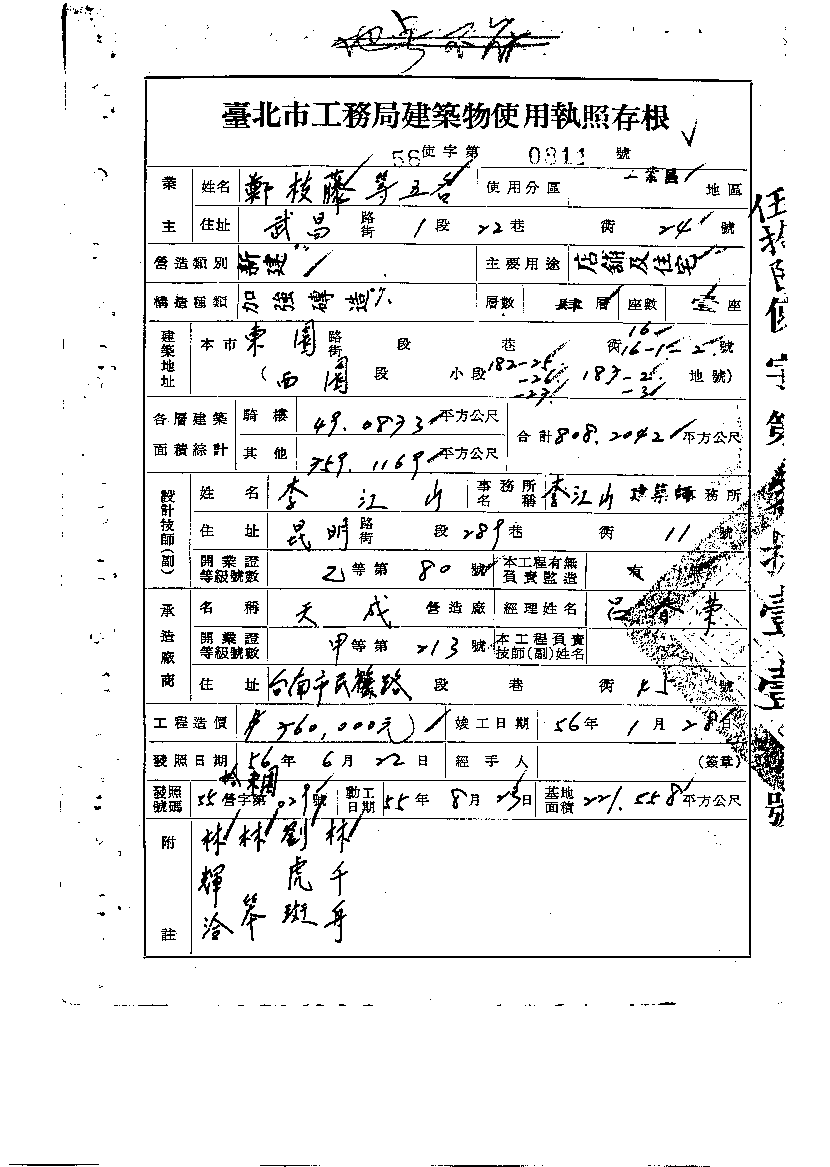 臺北市工務局建築物使用執照存根
56使字第 0811 號
業主 姓名 鄭枝藤等五名 使用分區 工業區 地區
住址 武昌 路街 1段 22巷 街 24號
營造類別 新建 主要用途 店舖及住宅
構造種類 加強磚造 層數 肆層 座數 座
建築地址 本市東園路街 段 巷 街 16 16-1-2號
(西園段 小段 182-25 -26 -27 183-2 -3 地號)
各層建築面積綜計 騎樓 49.0873平方公尺 合計808.2042平方公尺
其他 759.1169平方公尺
設計技師(副) 姓名 李江山 事務所名稱 李江山建築師事務所
住址 昆明路街 段289巷 街 11號
開業證等級號數 乙等第 80號 本工程有無負責監造 有
承造廠商 名稱 天成 營造廠 經理姓名 呂春榮
開業證等級號數 甲等第 213號 本工程負責技師(副)姓名
住址 台南市民族路 段 巷 街 45號
工程造價 560,000元 竣工日期 56年 1月 28日
發照日期 56年 6月 22日 經手人 (簽章)
發照號碼 55營字第 029號 動工日期 55年 8月 23日 基地面積 221.558平方公尺
附註 林輝 林笨 劉虎斑 林千舟
伍拾陸使字第 捌壹壹號